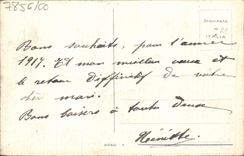 7856/00
Bons souhaits, pour l'année
1917. Et mon meilleur vœux et
le retour définitif de votre
cher mari.
Bons baisers à toutes deux
Henriette.